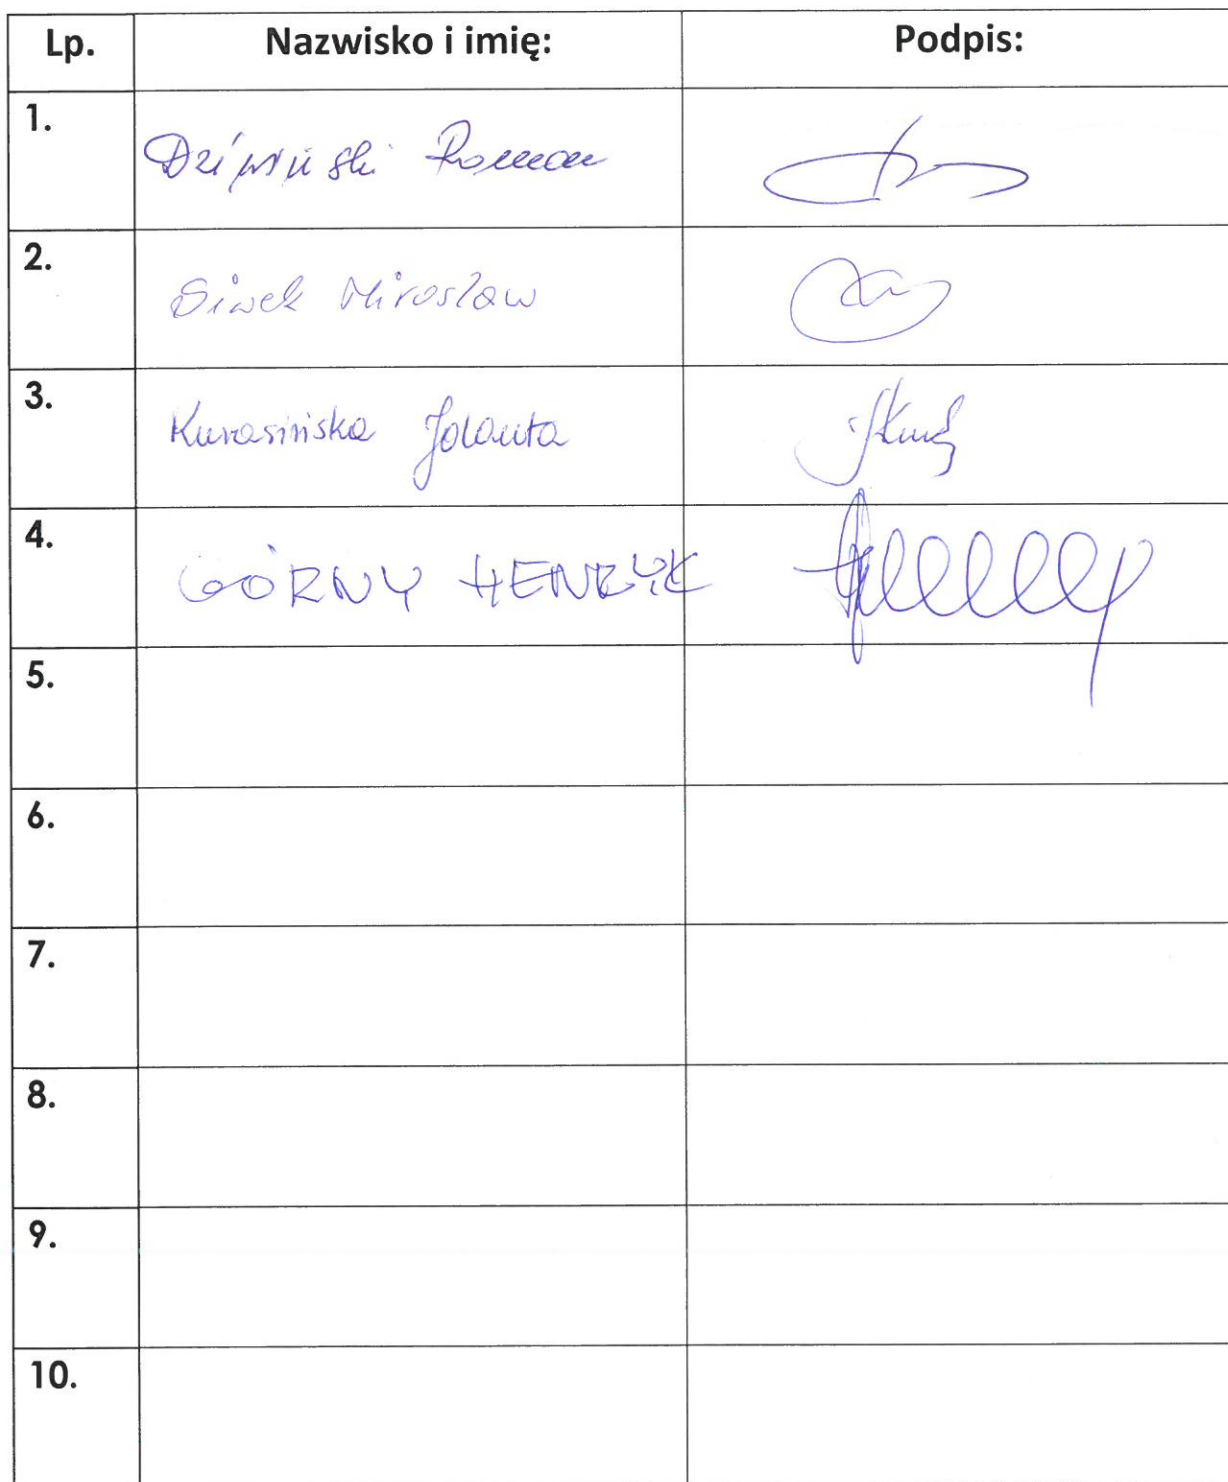 Lp. Nazwisko i imię: Podpis:
1. Dziwiński Roman
2. Siwek Mirosław
3. Kurasińska Jolanta
4. GÓRNY HENRYK
5.
6.
7.
8.
9.
10.